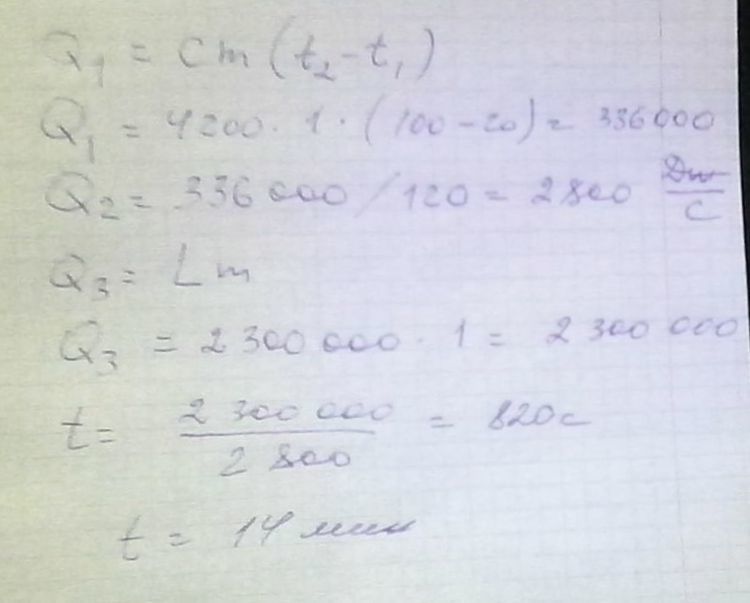 Q₁ = cm(t₂-t₁)
Q₁ = 4200 · 1 · (100-20) = 336000
Q₂ = 336 000 / 120 = 2800 Дж/с
Q₃ = Lm
Q₃ = 2 300 000 · 1 = 2 300 000
t = 2 300 000 / 2 800 = 820с
t = 14 мин